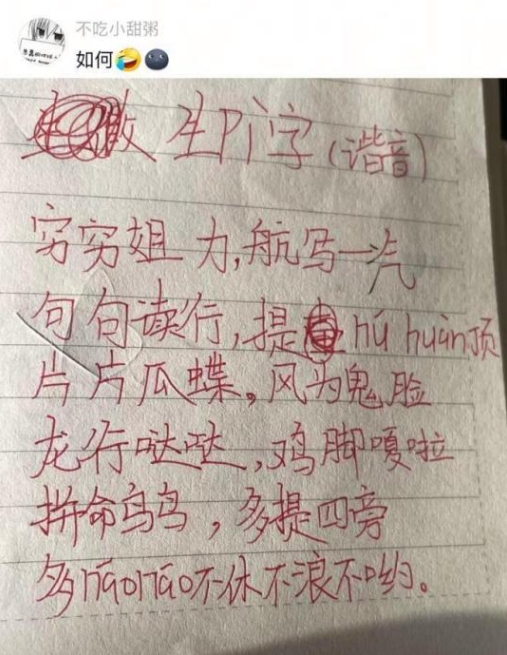 不吃小甜粥
如何🤣🌚
生pì字(谐音)
穷穷姐力,航写一汽
句句读行,提hú huàn顶
片片瓜蝶。风为鬼脸
龙行哒哒,鸡脚嘎啦
拼命鸟鸟,多提四旁
多nǎonǎo不休不浪不哟。